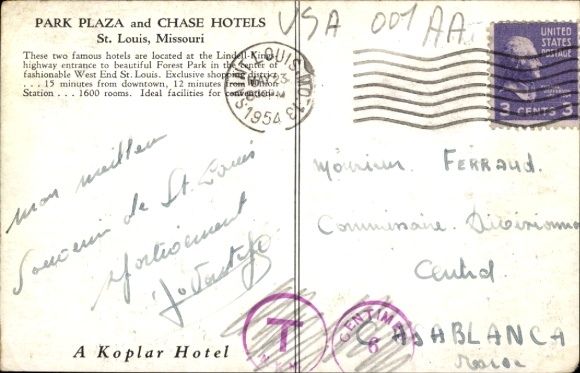 PARK PLAZA and CHASE HOTELS
St. Louis, Missouri
These two famous hotels are located at the Lindell-Kings-
highway entrance to beautiful Forest Park in the center of
fashionable West End St. Louis. Exclusive shopping district
. . . 15 minutes from downtown, 12 minutes from Union
Station . . . 1600 rooms. Ideal facilities for conventions.
USA 001 AA
SAINT LOUIS, MO. 13
1954
UNITED
STATES
POSTAGE
3 CENTS 3
mon meilleur
souvenir de St. Louis
Monsieur FERRAUD
Commissaire Divisionna
Central
CASABLANCA
Maroc
T
CENTIMES
6
A Koplar Hotel